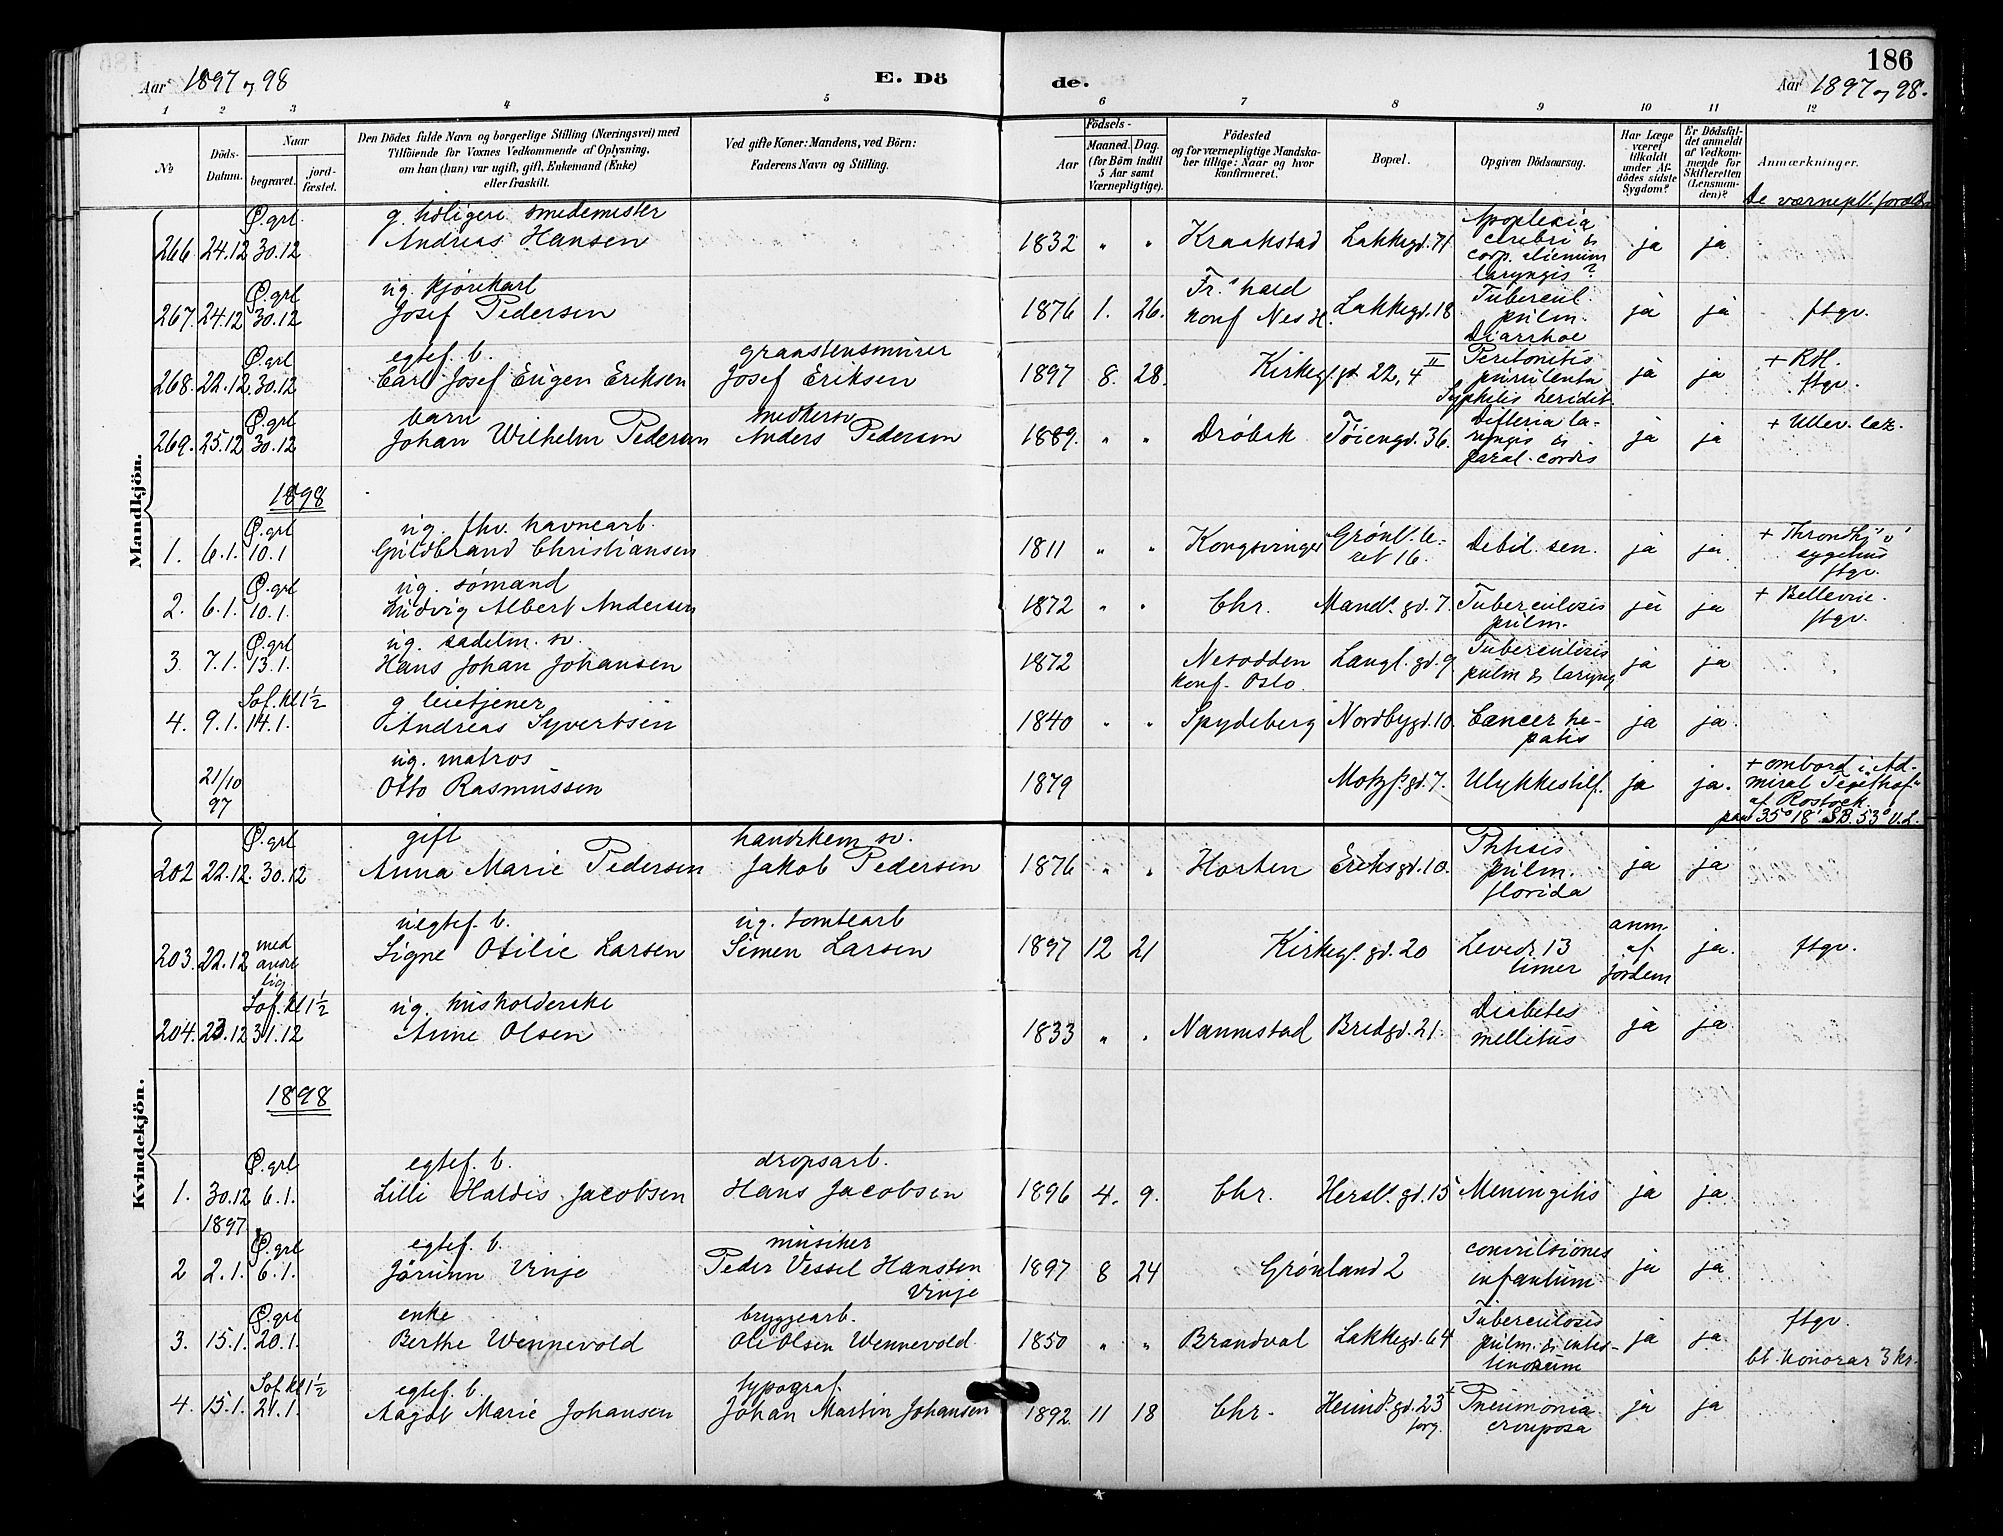 186
Aar 1897 og 98
E. Dö
de.
Aar 1897 og 98.
1 2 3 4 5 6 7 8 9 10 11 12
No
Döds-Datum.
Naar
begravet.
jord-fæstet.
Den Dödes fulde Navn og borgerlige Stilling (Næringsvei) med
Tilföiende for Voxnes Vedkommende af Oplysning,
om han (hun) var ugift, gift, Enkemand (Enke)
eller fraskilt.
Ved gifte Koner: Mandens, ved Börn:
Faderens Navn og Stilling.
Födsels-
Aar
Maaned. Dag.
(for Börn indtil
5 Aar samt
Værnepligtige).
Födested
og for værnepligtige Mandska-
ber tillige: Naar og hvor
konfirmeret.
Bopæl.
Opgiven Dödsaarsag.
Har Læge
været
tilkaldt
under Af-
dödes sidste
Sygdom?
Er Dödsfal-
det anmeldt
af Vedkom-
mende for
Skifteretten
(Lensman-
den)?
Anmærkninger.
De værnepl. foræld.
Mandkjön.
Ø. grl. g. boligeier smedemester Apoplexia
266 24.12 30.12 Andreas Hansen 1832 " " Kraakstad Lakkegd. 71 cerebri &
corp. alienum
laryngis? ja ja
Ø. grl ug. kjørekarl Fr.hald Tubercul.
267. 24.12 30.12 Josef Pedersen 1876 1. 26. Konf Nes H. Lakkegd. 18 pulm. ja ja ftgv.
Diarrhoe
Ø. grl egtef. b. graastensmurer Peritonitis + Rdl.
268. 22.12. 30.12 Carl Josef Eugen Eriksen Josef Eriksen 1897 8. 28. Kirkegd. 22, 4 II purulenta ja ja ftgv.
Syphilis heridit.
Ø. grl barn snedkersv Difteria la-
269. 25.12 30.12 Johan Wilhelm Pedersen Anders Pedersen 1889. " " Drøbak Tøiengd. 36. ryngis &
paral. cordis ja ja + Ullev. laz.
1898
Ø. grl ug. fhv. havnearb. Grønl. le- + Throndhj. v
1. 6.1. 10.1 Guldbrand Christiansen 1811 " " Kongsvinger ret 16. Debil. sen. ja ja sygehus
ftgv.
Ø. grl ug. sømand + Bellevue.
2. 6.1. 10.1. Ludvig Albert Andersen 1872 " " Chr. Mandl. gd. 7. Tuberculosis
pulm. ja ja ftgv.
Ø. grl ug. sadelm. sv. Tuberculosis
3 7.1. 13.1. Hans Johan Johansen 1872 Nesodden Langl. gd. 9 pulm & laryng ja ja
Konf. Oslo.
Sof. kl 1½ g leietjener
4. 9.1. 14.1. Andreas Syvertsen 1840 " " Spydeberg Nordbygd. 10. Cancer he-
patis ja ja
ug. matros + ombord i "Ad-
21/10 97 Otto Rasmussen 1879 Motzf. gd. 7. Ulykkestilf. ja ja. miral Tegethof"
af Rostock
paa 35° 18' SB. 53° V.L.
Kvindekjön.
Ø. grl gift handskem. sv. Phtisis
202 22.12. 30.12 Anna Marie Pedersen Jakob Pedersen 1876 " " Horten Eriksgd. 10. pulm.
florida ja ja
uegtef. b. ug. tomtearb anm.
203. 22.12 med andre lig Signe Otilie Larsen Simen Larsen 1897 12 21 Kirkegl. gd. 20 Leved. 13
timer af
jordem ja. ftgv.
Sof. kl 1½ ug. husholderske Diabetes
204. 23.12 31.12 Anne Olsen 1833 " " Nannestad Bredgd. 21. mellitus ja ja
1898
Ø. grl egtef. b. dropsarb.
1. 30.12 6.1. Lilli Haldis Jacobsen Hans Jacobsen 1896 4. 9. Chr. Hersl. gd. 15 Meningitis ja ja
1897
Ø. grl egtef. b. musiker convulsiones
2 2.1. 6.1. Jørunn Vinje Peder Vessel Hansten
Vinje 1897 8 24 Grønland 2 infantum ja ja
Ø. grl enke bryggearb. Tuberculosis ftgv.
3. 15.1. 20.1. Berthe Wennevold Ole Olsen Wennevold 1850 " " Brandval Lakkegd. 64 pulm. & intes-
tinorum ja ja bt. honorar 3 kr.
Sof. kl 1½ egtef. b. typograf
4. 15.1. 21.1. Aagot Marie Johansen Johan Martin Johansen 1892 11 18 Chr. Heimd. gd. 23 I
forg. Pneumonia
crouposa ja ja